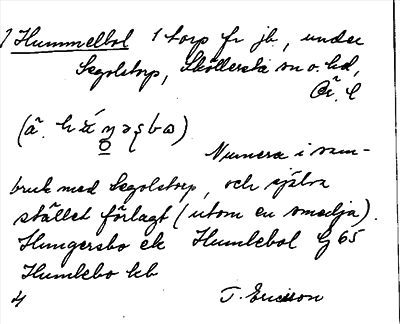 1 Hummelbol 1 torp fr jb, under
Segolstorp, Sköllersta sn o. hd,
Ör. l
(ä.
Numera i sam-
bruk med Segolstorp, och själva
stället förlagt (utom en smedja).
Hungersbo ek Humlebol Gj 65
Humlebo kb
4 T. Ericsson